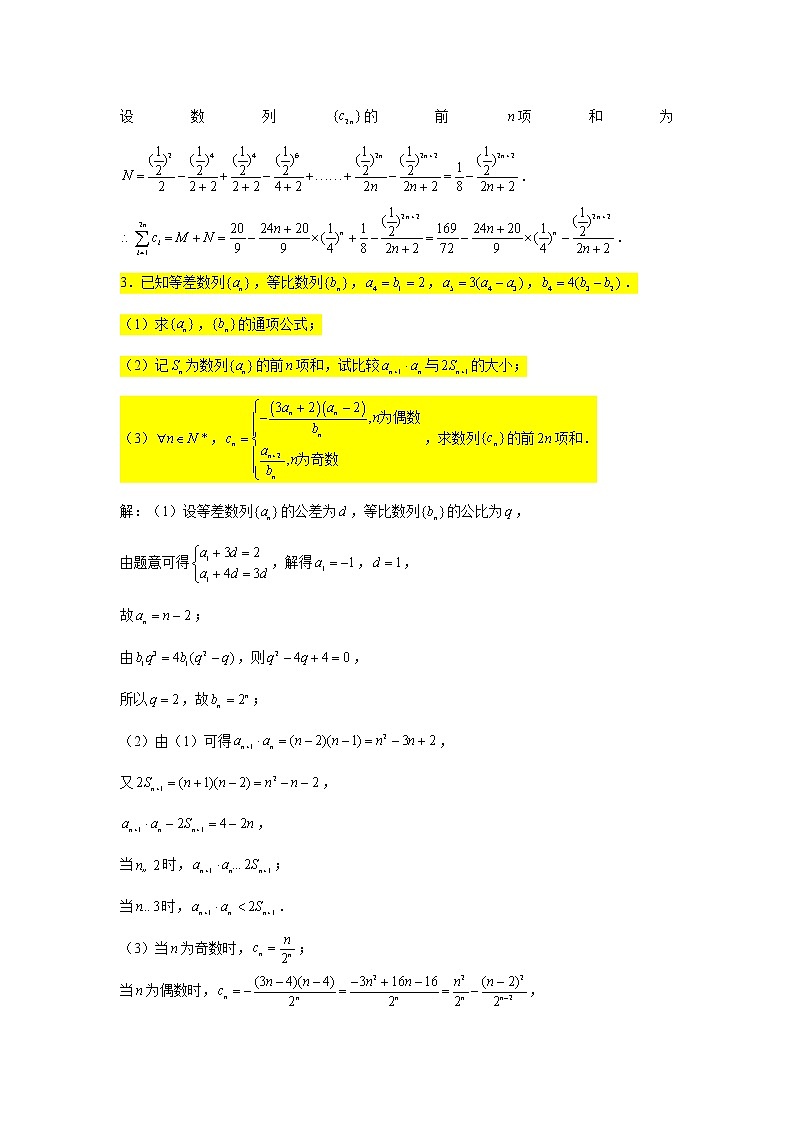 设 数 列 {c_{2n}} 的 前 n 项 和 为
N = \frac{(\frac{1}{2})^2}{2} - \frac{(\frac{1}{2})^4}{2+2} + \frac{(\frac{1}{2})^4}{2+2} - \frac{(\frac{1}{2})^6}{4+2} + …… + \frac{(\frac{1}{2})^{2n}}{2n} - \frac{(\frac{1}{2})^{2n+2}}{2n+2} = \frac{1}{8} - \frac{(\frac{1}{2})^{2n+2}}{2n+2}．
∴ \sum_{i=1}^{2n} c_i = M + N = \frac{20}{9} - \frac{24n+20}{9} × (\frac{1}{4})^n + \frac{1}{8} - \frac{(\frac{1}{2})^{2n+2}}{2n+2} = \frac{169}{72} - \frac{24n+20}{9} × (\frac{1}{4})^n - \frac{(\frac{1}{2})^{2n+2}}{2n+2}．
3．已知等差数列{a_n}，等比数列{b_n}，a_4 = b_1 = 2，a_5 = 3(a_4 - a_3)，b_4 = 4(b_3 - b_2)．
（1）求{a_n}，{b_n}的通项公式；
（2）记 S_n 为数列{a_n}的前 n 项和，试比较 a_{n+1}·a_n 与 2S_{n+1} 的大小；
（3）∀n∈N*，c_n = \begin{cases} -\frac{(3a_n+2)(a_n-2)}{b_n}, n为偶数 \\ \frac{a_{n+2}}{b_n}, n为奇数 \end{cases}，求数列{c_n}的前 2n 项和．
解：（1）设等差数列{a_n}的公差为 d，等比数列{b_n}的公比为 q，
由题意可得 \begin{cases} a_1 + 3d = 2 \\ a_1 + 4d = 3d \end{cases}，解得 a_1 = -1，d = 1，
故 a_n = n - 2；
由 b_1q^3 = 4b_1(q^2 - q)，则 q^2 - 4q + 4 = 0，
所以 q = 2，故 b_n = 2^n；
（2）由（1）可得 a_{n+1}·a_n = (n-2)(n-1) = n^2 - 3n + 2，
又 2S_{n+1} = (n+1)(n-2) = n^2 - n - 2，
a_{n+1}·a_n - 2S_{n+1} = 4 - 2n，
当 n,, 2 时，a_{n+1}·a_n...2S_{n+1}；
当 n..3 时，a_{n+1}·a_n < 2S_{n+1}．
（3）当 n 为奇数时，c_n = \frac{n}{2^n}；
当 n 为偶数时，c_n = -\frac{(3n-4)(n-4)}{2^n} = \frac{-3n^2+16n-16}{2^n} = \frac{n^2}{2^n} - \frac{(n-2)^2}{2^{n-2}}，